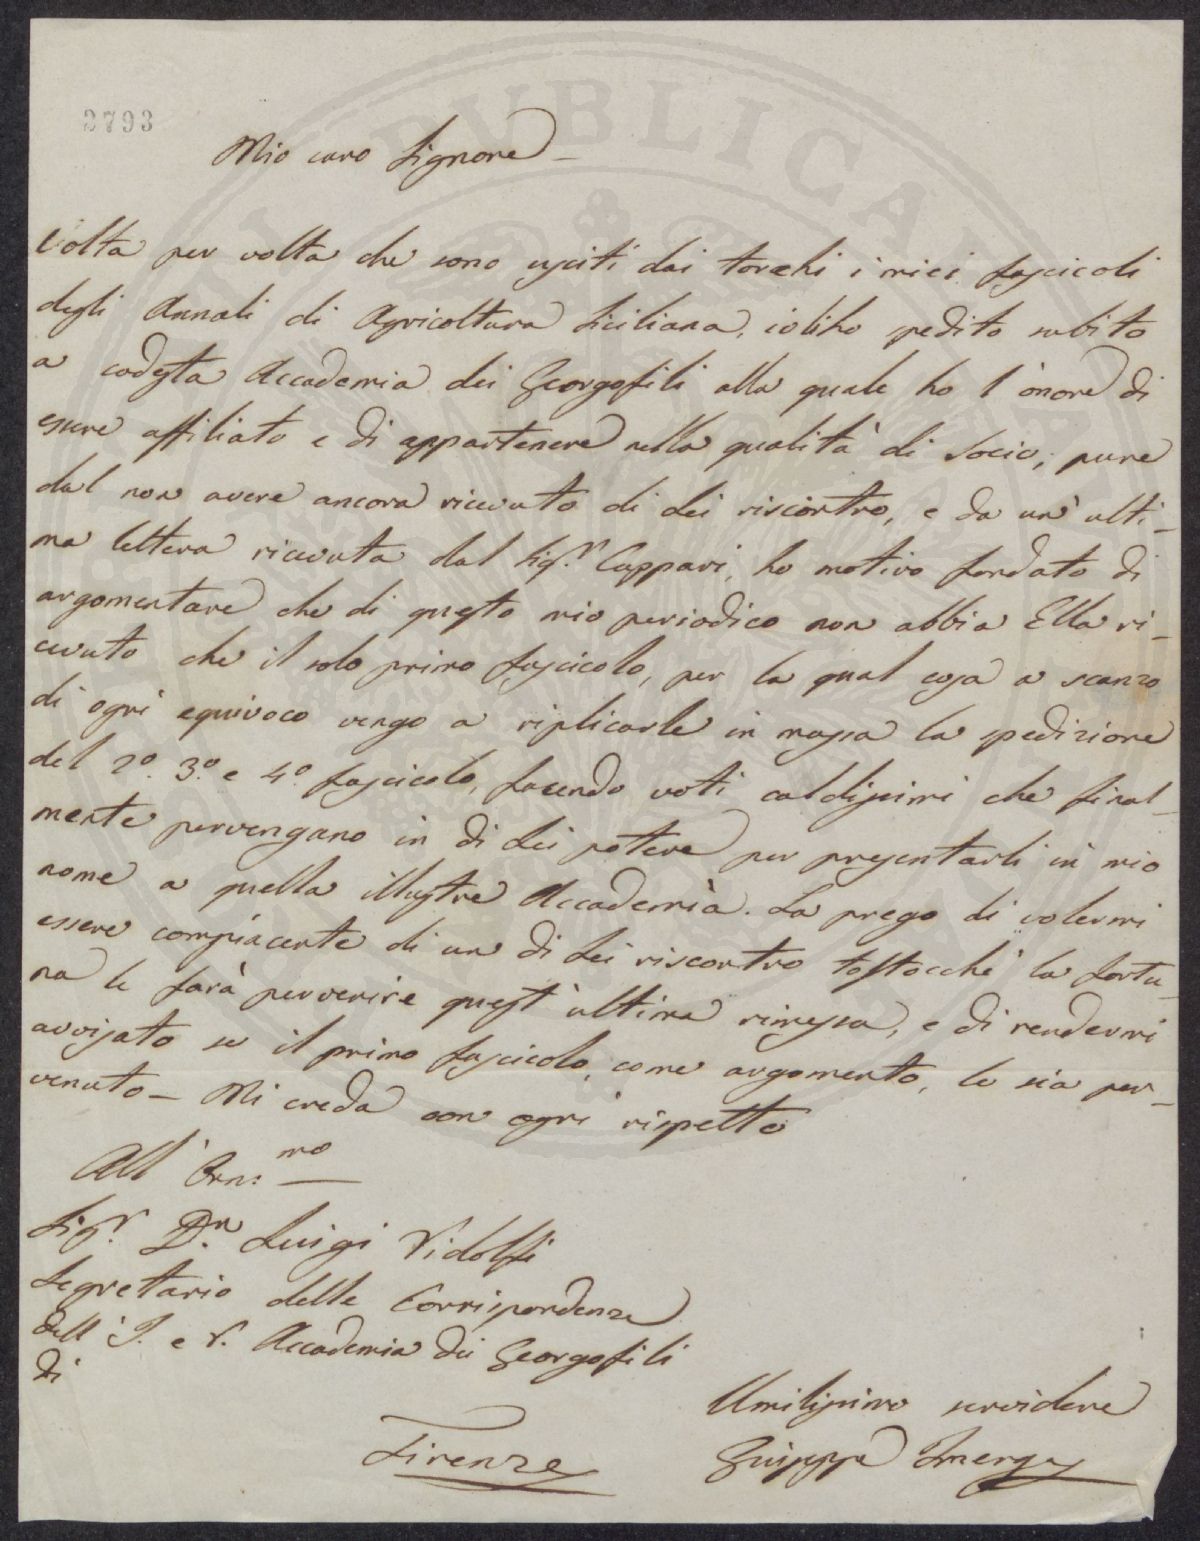 2793
Mio caro Signore –
Volta per volta che sono usciti dai torchi i miei fascicoli
degli Annali di Agricoltura Siciliana, io li ho spedito subito
a codesta Accademia dei Georgofili alla quale ho l'onore di
essere affiliato e di appartenere nella qualità di Socio; pure
dal non avere ancora ricevuto di Lei riscontro, e da un'ulti-
ma lettera ricevuta dal Sig.r Cuppari, ho motivo fondato di
argomentare che di questo mio periodico non abbia Ella ri-
cevuto che il solo primo fascicolo, per la qual cosa a scanzo
di ogni equivoco vengo a riplicarle in massa la spedizione
del 2.º 3.º e 4.º fascicolo, facendo voti caldissimi che final-
mente pervengano in di Lei potere per presentarli in mio
nome a quella illustre Accademia. La prego di volermi
essere compiacente di un di Lei riscontro tostocchè la fortu-
na le farà pervenire quest'ultima rimessa, e di rendermi
avvisato se il primo fascicolo, come argomento, le sia per-
venuto – Mi creda con ogni rispetto
All' Orn:mo
Sig.r D.n Luigi Ridolfi
Segretario delle Corrispondenze
dell' I. e R. Accademia dei Georgofili
di
Firenze
Umilissimo servidore
Giuseppe Inzenga
PUBLICAE